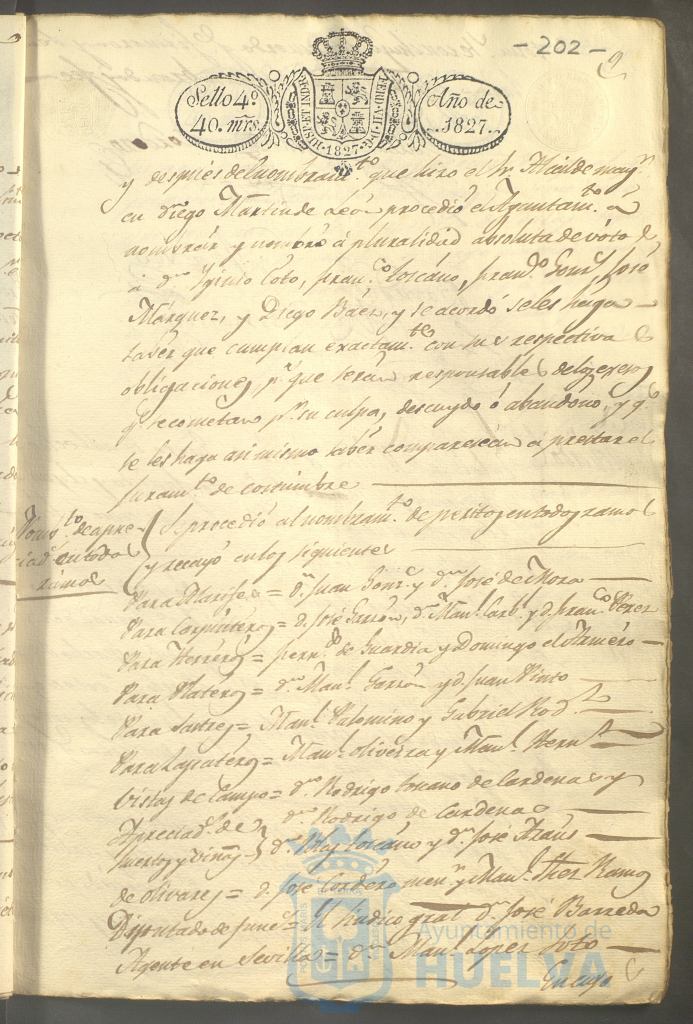 - 202 -
Sello 4º
40. mrs
HISPAN. ET IND. R.
FERD. VII. D. G.
1827
Año de
1827.
y después del nombramto que hizo el Sr. Alcalde mayr
en dn Diego Martin de León procedió el Ayuntamto á
nombrar y nombró á pluralidad absoluta de votos
á dn Yginio Coto, Franco Toscano, Franco Gonz, José
Márquez, y Diego Báez, y se acordó se les haga
saber que cumplan exactamte con sus respectivas
obligaciones, pr que serán responsables de los excesos
q. se cometan pr su culpa, descuydo ó abandono, y q.
se les haga asi mismo saber comparescan a prestar el
juramto de costumbre
Nombto de apre-
ciads en todos
ramos
Se procedió al nombramto de peritos en todos ramos
y recayó en los siguientes
Para Alarifes = dn Juan Gonz y dn José de Mora
Para Carpinteros = d. José Garrón, dn Manl Carb y d. Franco Pérez
Para Herreros = Ferndo de Guardia y Domingo el Armero
Para Plateros = dn Manl Garrón y d Juan Pinto
Para Sastres = Manl Palomino y Gabriel Rod
Para Zapateros = Manl Oliveira y Manl Hern
Vistas de Campo = dn Rodrigo Toscano de Cardenas y
dn Rodrigo de Cardenas
Apreciads de
huertos y viñas } dn Blas Toscano y dn José
de olivares = d. José Cordero menr y Manl Ramos
Diputado de = El Sindico gral dn José Barreda
Agente en Sevilla = dn Manl López Soto
En cuyo
Ayuntamiento de
HUELVA